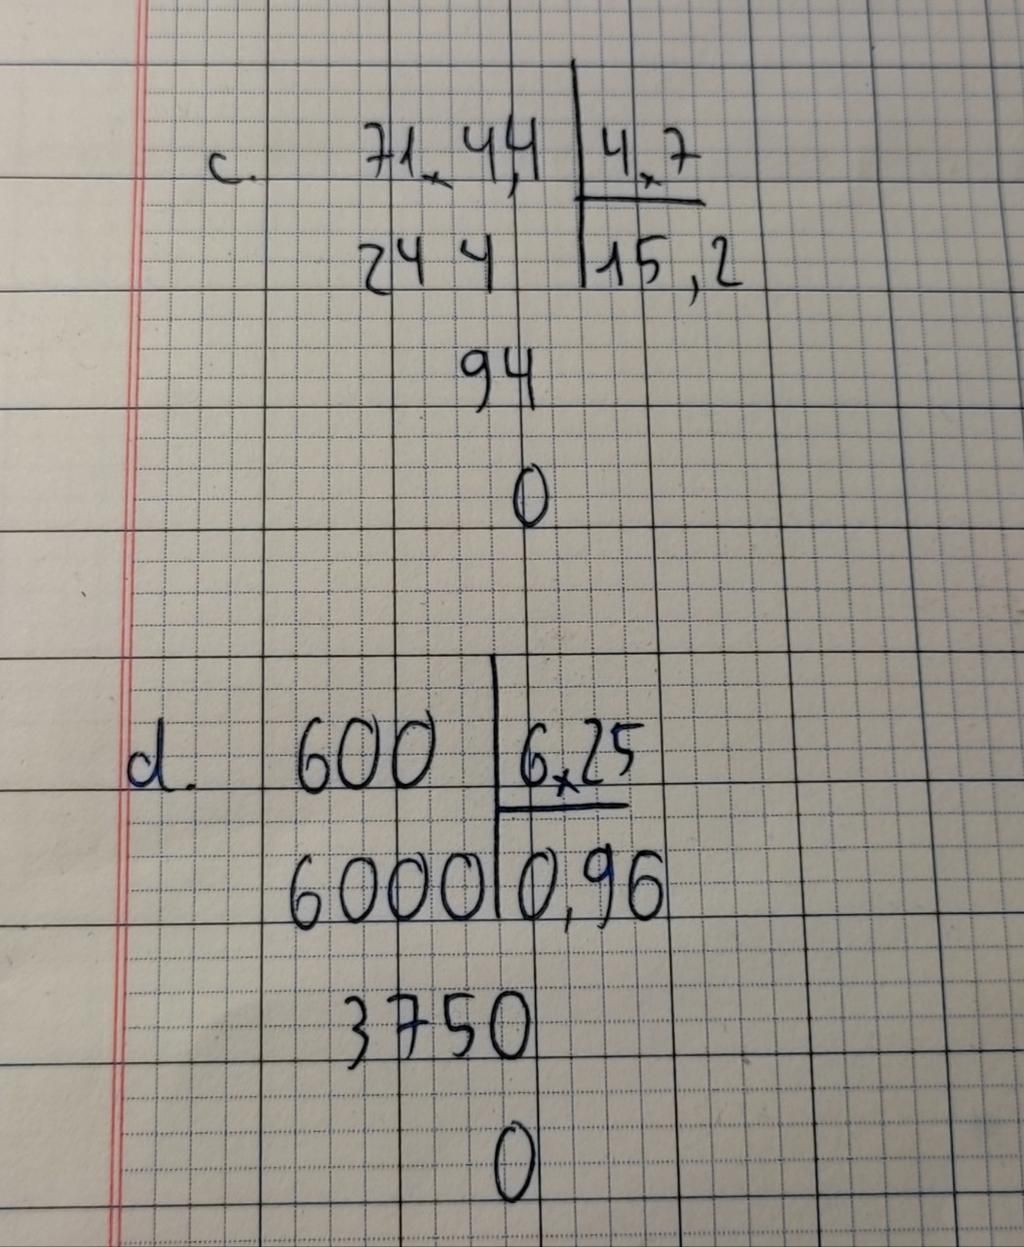 c. 71×44,4 | 4×7
244 | 15,2
94
0
d. 600 | 6×25
6000 | 0,96
3750
0